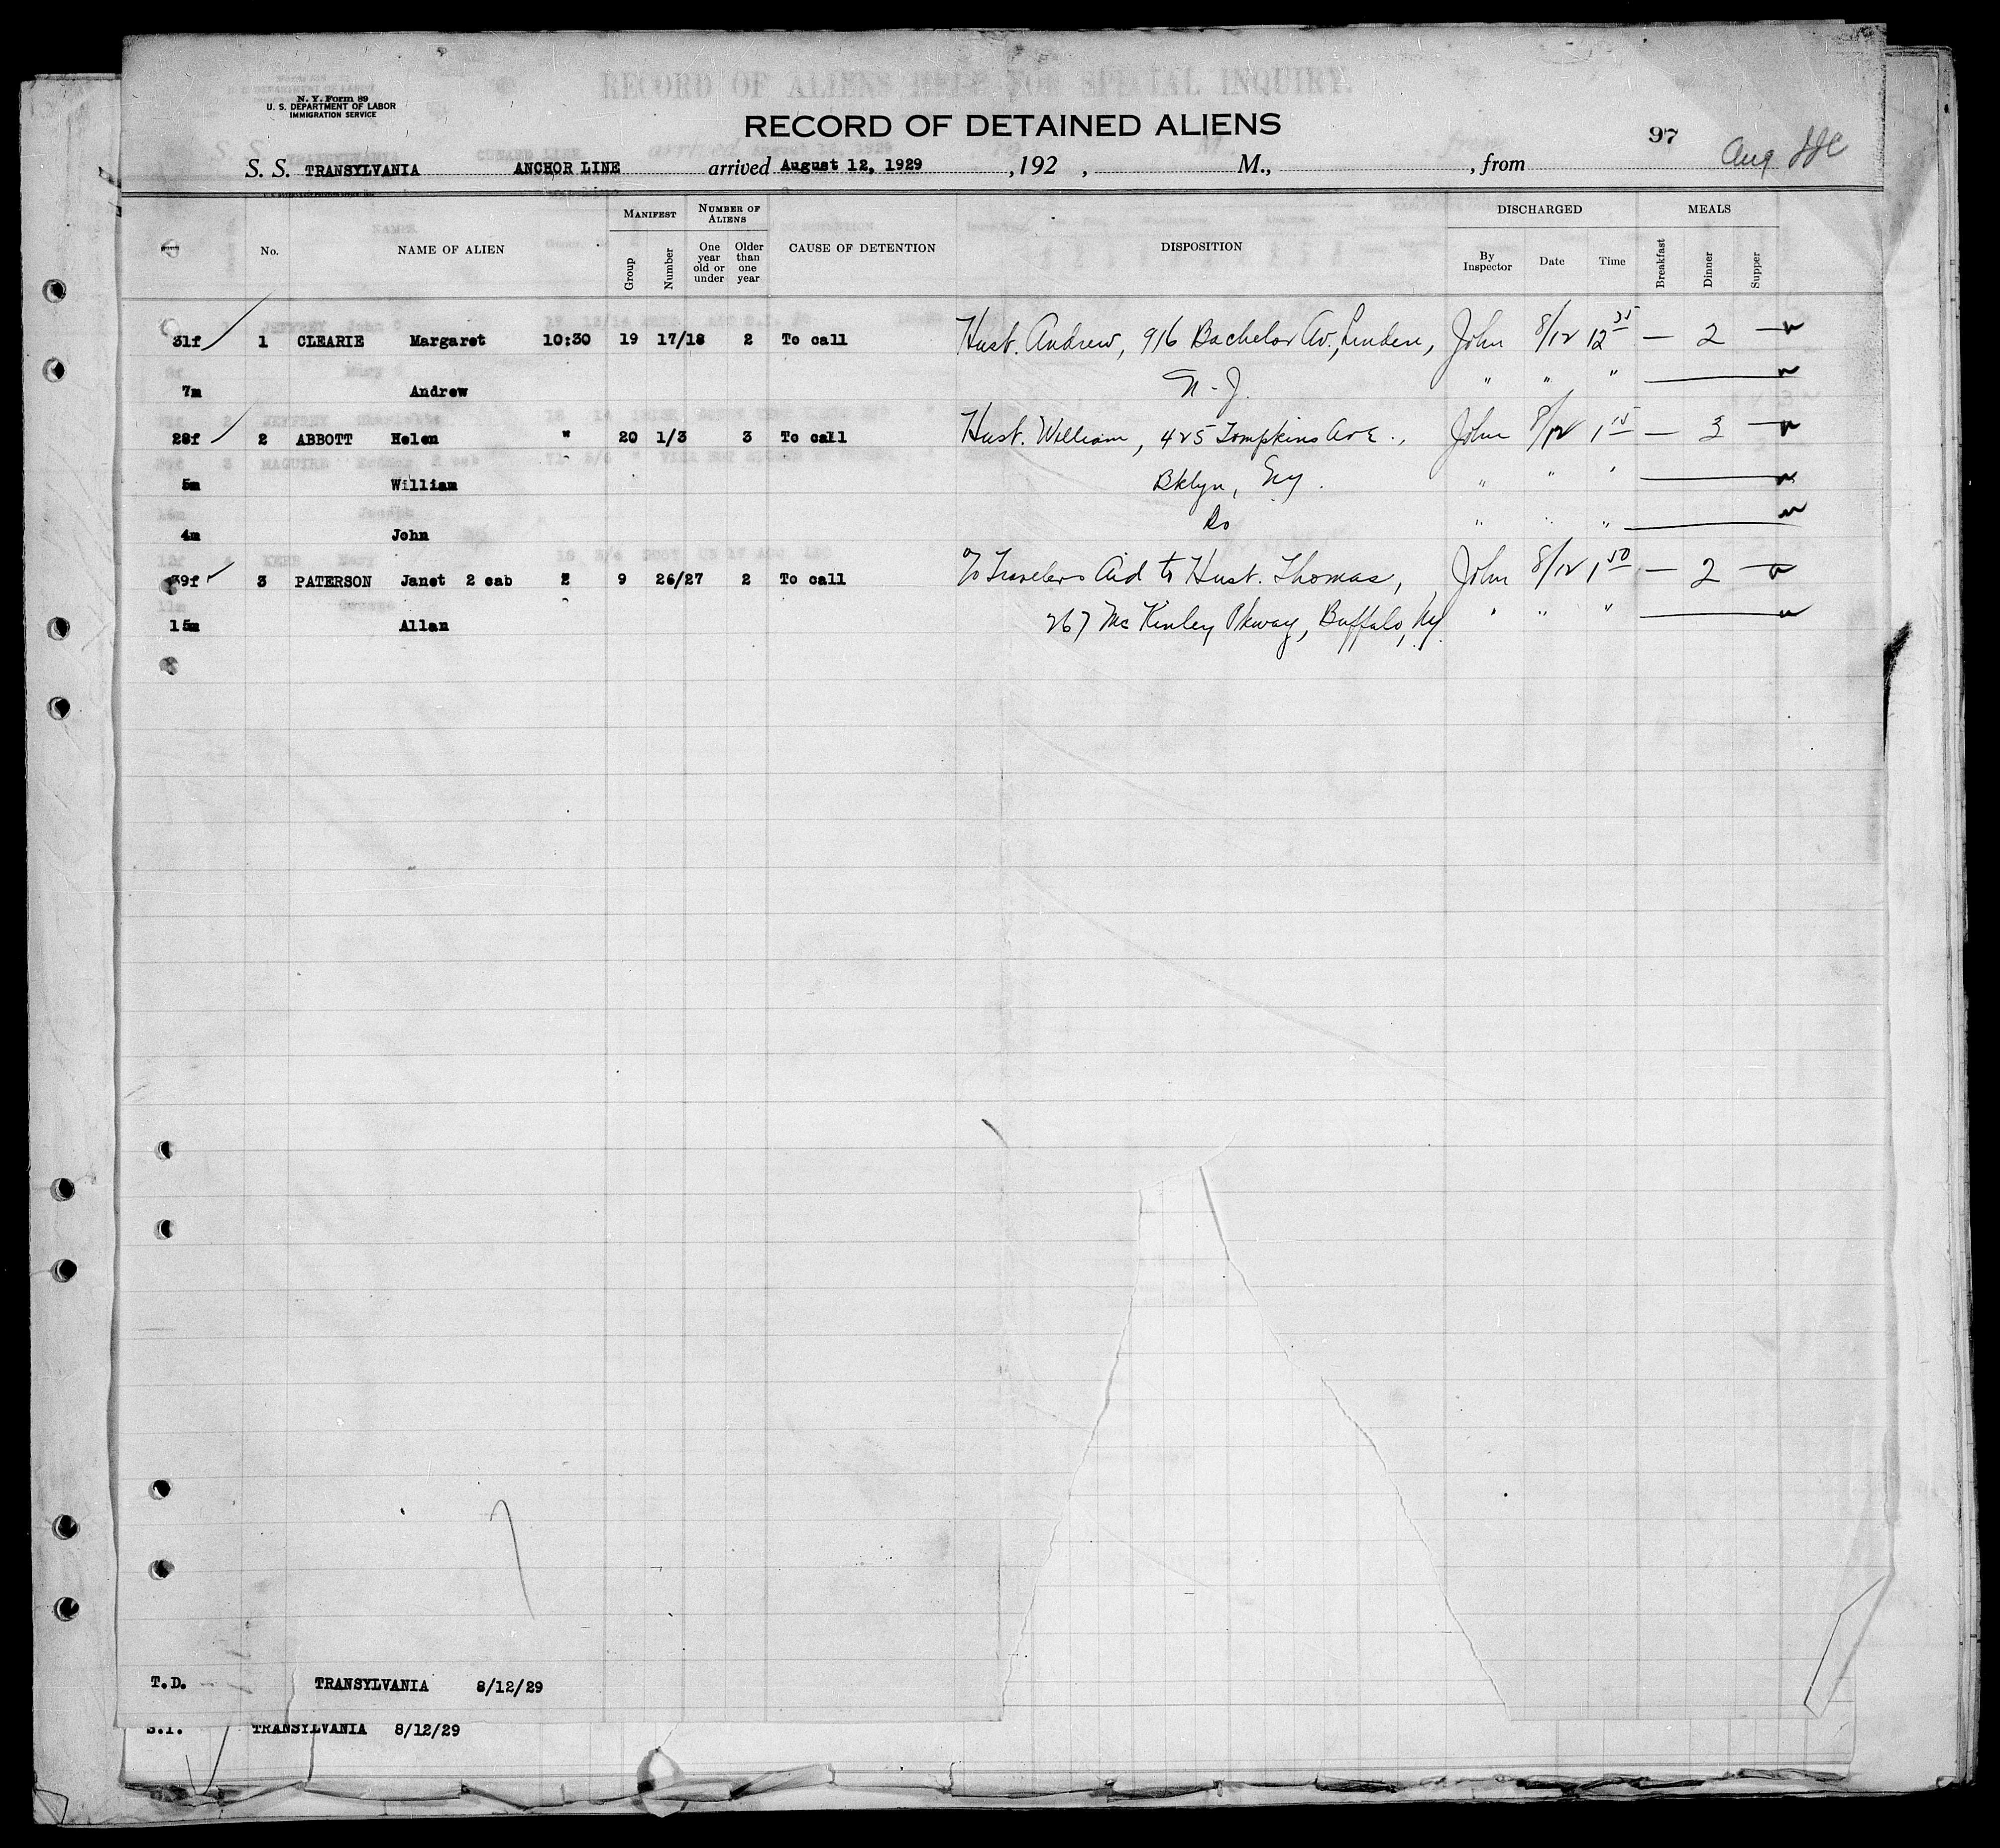 N. Y. Form 89
U. S. DEPARTMENT OF LABOR
IMMIGRATION SERVICE
RECORD OF ALIENS HELD FOR SPECIAL INQUIRY.
RECORD OF DETAINED ALIENS
97
Aug
S. S. TRANSYLVANIA ANCHOR LINE arrived August 12, 1929 , 192 , M., , from
No. NAME OF ALIEN MANIFEST Group Number NUMBER OF ALIENS One year old or under Older than one year CAUSE OF DETENTION DISPOSITION DISCHARGED By Inspector Date Time MEALS Breakfast Dinner Supper
31f 1 CLEARIE Margaret 10:30 19 17/18 2 To call Husb. Andrew, 916 Bachelor Av., Linden, John 8/12 12 35 — 2 —
7m Andrew N. J. " " "
28f 2 ABBOTT Helen " 20 1/3 3 To call Husb. William, 425 Tompkins Ave., John 8/12 1 15 — 3 —
5m William Bklyn, NY. " " "
4m John Do " " "
39f 3 PATERSON Janet 2 cab 9 26/27 2 To call To Travelers Aid to Husb. Thomas, John 8/12 1 50 — 2 —
15m Allan 267 McKinley Pkway, Buffalo, NY. " " "
T.D. TRANSYLVANIA 8/12/29
S.I. TRANSYLVANIA 8/12/29